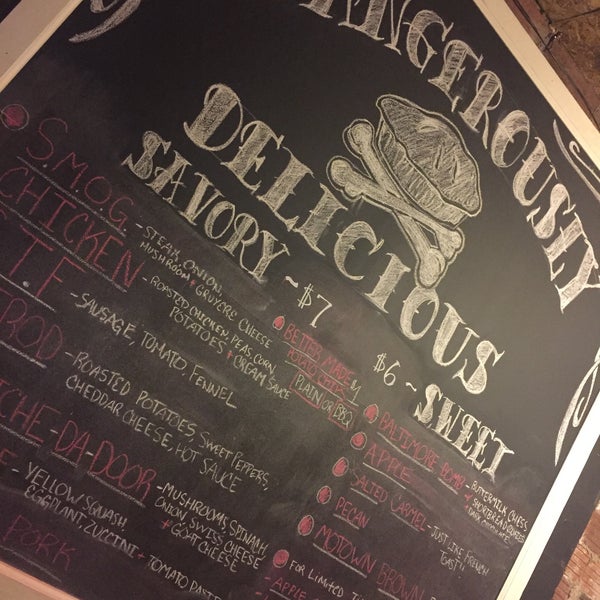 ANGEROUSLY
DELICIOUS
SAVORY ~ $7
S.M.O.G. - STEAK, ONION,
MUSHROOM + GRUYERE CHEESE
CHICKEN - ROASTED CHICKEN, PEAS, CORN,
POTATOES + CREAM SAUCE
TF - SAUSAGE, TOMATO, FENNEL
ROD - ROASTED POTATOES, SWEET PEPPERS,
CHEDDAR CHEESE, HOT SAUCE
CHE-DA-DOOR - MUSHROOMS, SPINACH,
ONION, SWISS CHEESE
+ GOAT CHEESE
- YELLOW SQUASH,
EGGPLANT, ZUCCINI + TOMATO PASTE
PORK
BETTER MADE
POTATO CHIPS $1
PLAIN OR BBQ
$6 ~ SWEET
BALTIMORE BOMB - BUTTERMILK CHESS
+ SHORTBREAD
APPLE
SALTED CARMEL - JUST LIKE FRENCH
TOAST!!
PECAN
MOTOWN BROWN
FOR LIMITED TI
APPLE